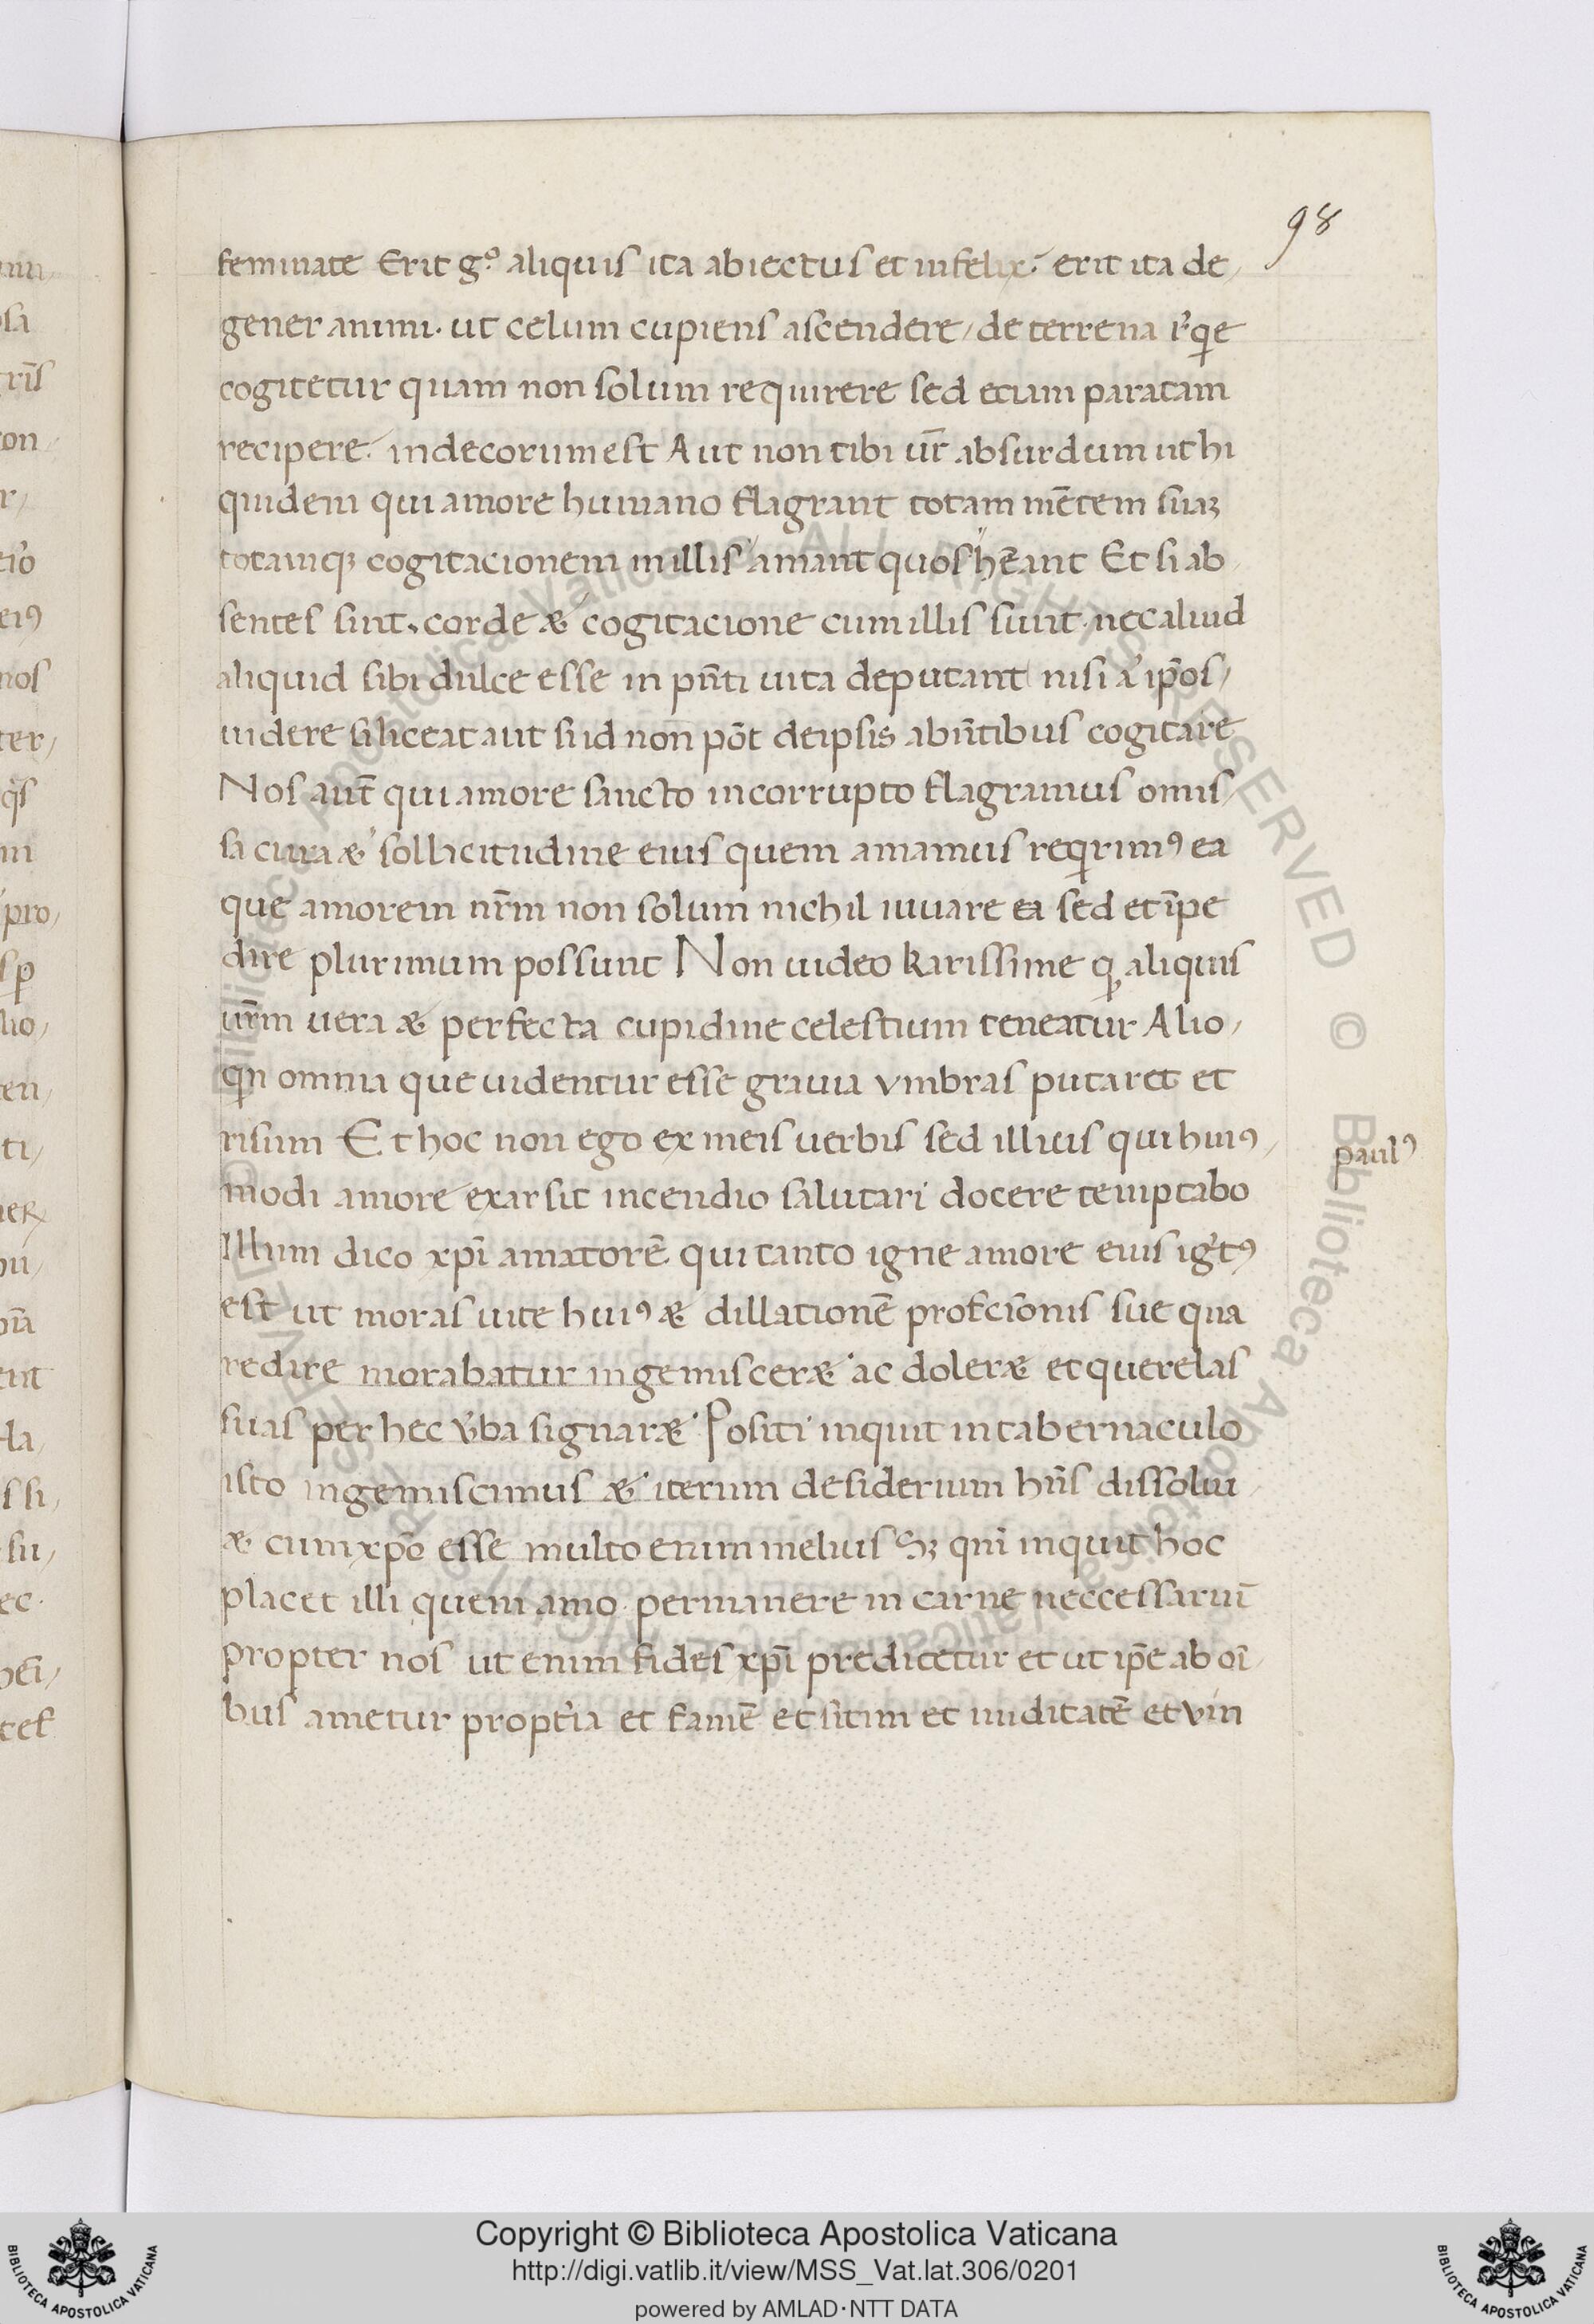 98
feminate Erit g.º aliquis ita abiectus et infelix. erit ita de
gener animi. ut celum cupiens ascendere, de terrena
cogitetur quam non solum requirere sed etium paratam
recipere. indecorum est Aut non tibi ur̄ absurdum ut hi
quidem qui amore humano flagrant totam mētem suaꝫ
totamqꝫ cogitacionem in illis amant quos hēant Et si ab
sentes sint. corde & cogitacione cum illis sunt. nec aliud
aliquid sibi dulce esse in pn̄ti uita deputant nisi a' ip̄os,
uidere si liceat aut si id non pōt de ipsis abn̄tibus cogitare
Nos aut̄ qui amore sancto incorrupto flagramus omis
sa cura & sollicitudine eius quem amamus reqrimꝰ ea
que amorem nr̄m non solum nichil iuuare ea sed et īpe
dire plurimum possunt Non uideo karissime ꝙ aliquis
ur̄m uera & perfecta cupidine celestium teneatur Alio,
qn omnia que uidentur esse grauia vmbras putaret et
risum Et hoc non ego ex meis uerbis sed illius qui huiꝰ,
modi amore exarsit incendio salutari docere temptabo
paulꝰ
Illum dico xp̄i amatorē qui tanto igne amore eius iḡtꝰ
est ut moras uite huiꝰ & dillationē profcīonis sue qua
redire morabatur ingemiscer& ac doler& et querelas
suas per hec v̓ba signar& Positi inquit in tabernaculo
isto ingemiscimus & iterum desiderium hn̄s dissolui
& cum xp̄o esse multo enim melius Sꝫ qm̄ inquit hoc
placet illi quem amo permanere in carne neccessariū
propter nos ut enim fides xp̄i predicetur et ut ip̄e ab oī
bus ametur propt̓ia et famē et sitim et nuditatē et vin
Copyright © Biblioteca Apostolica Vaticana
http://digi.vatlib.it/view/MSS_Vat.lat.306/0201
powered by AMLAD·NTT DATA